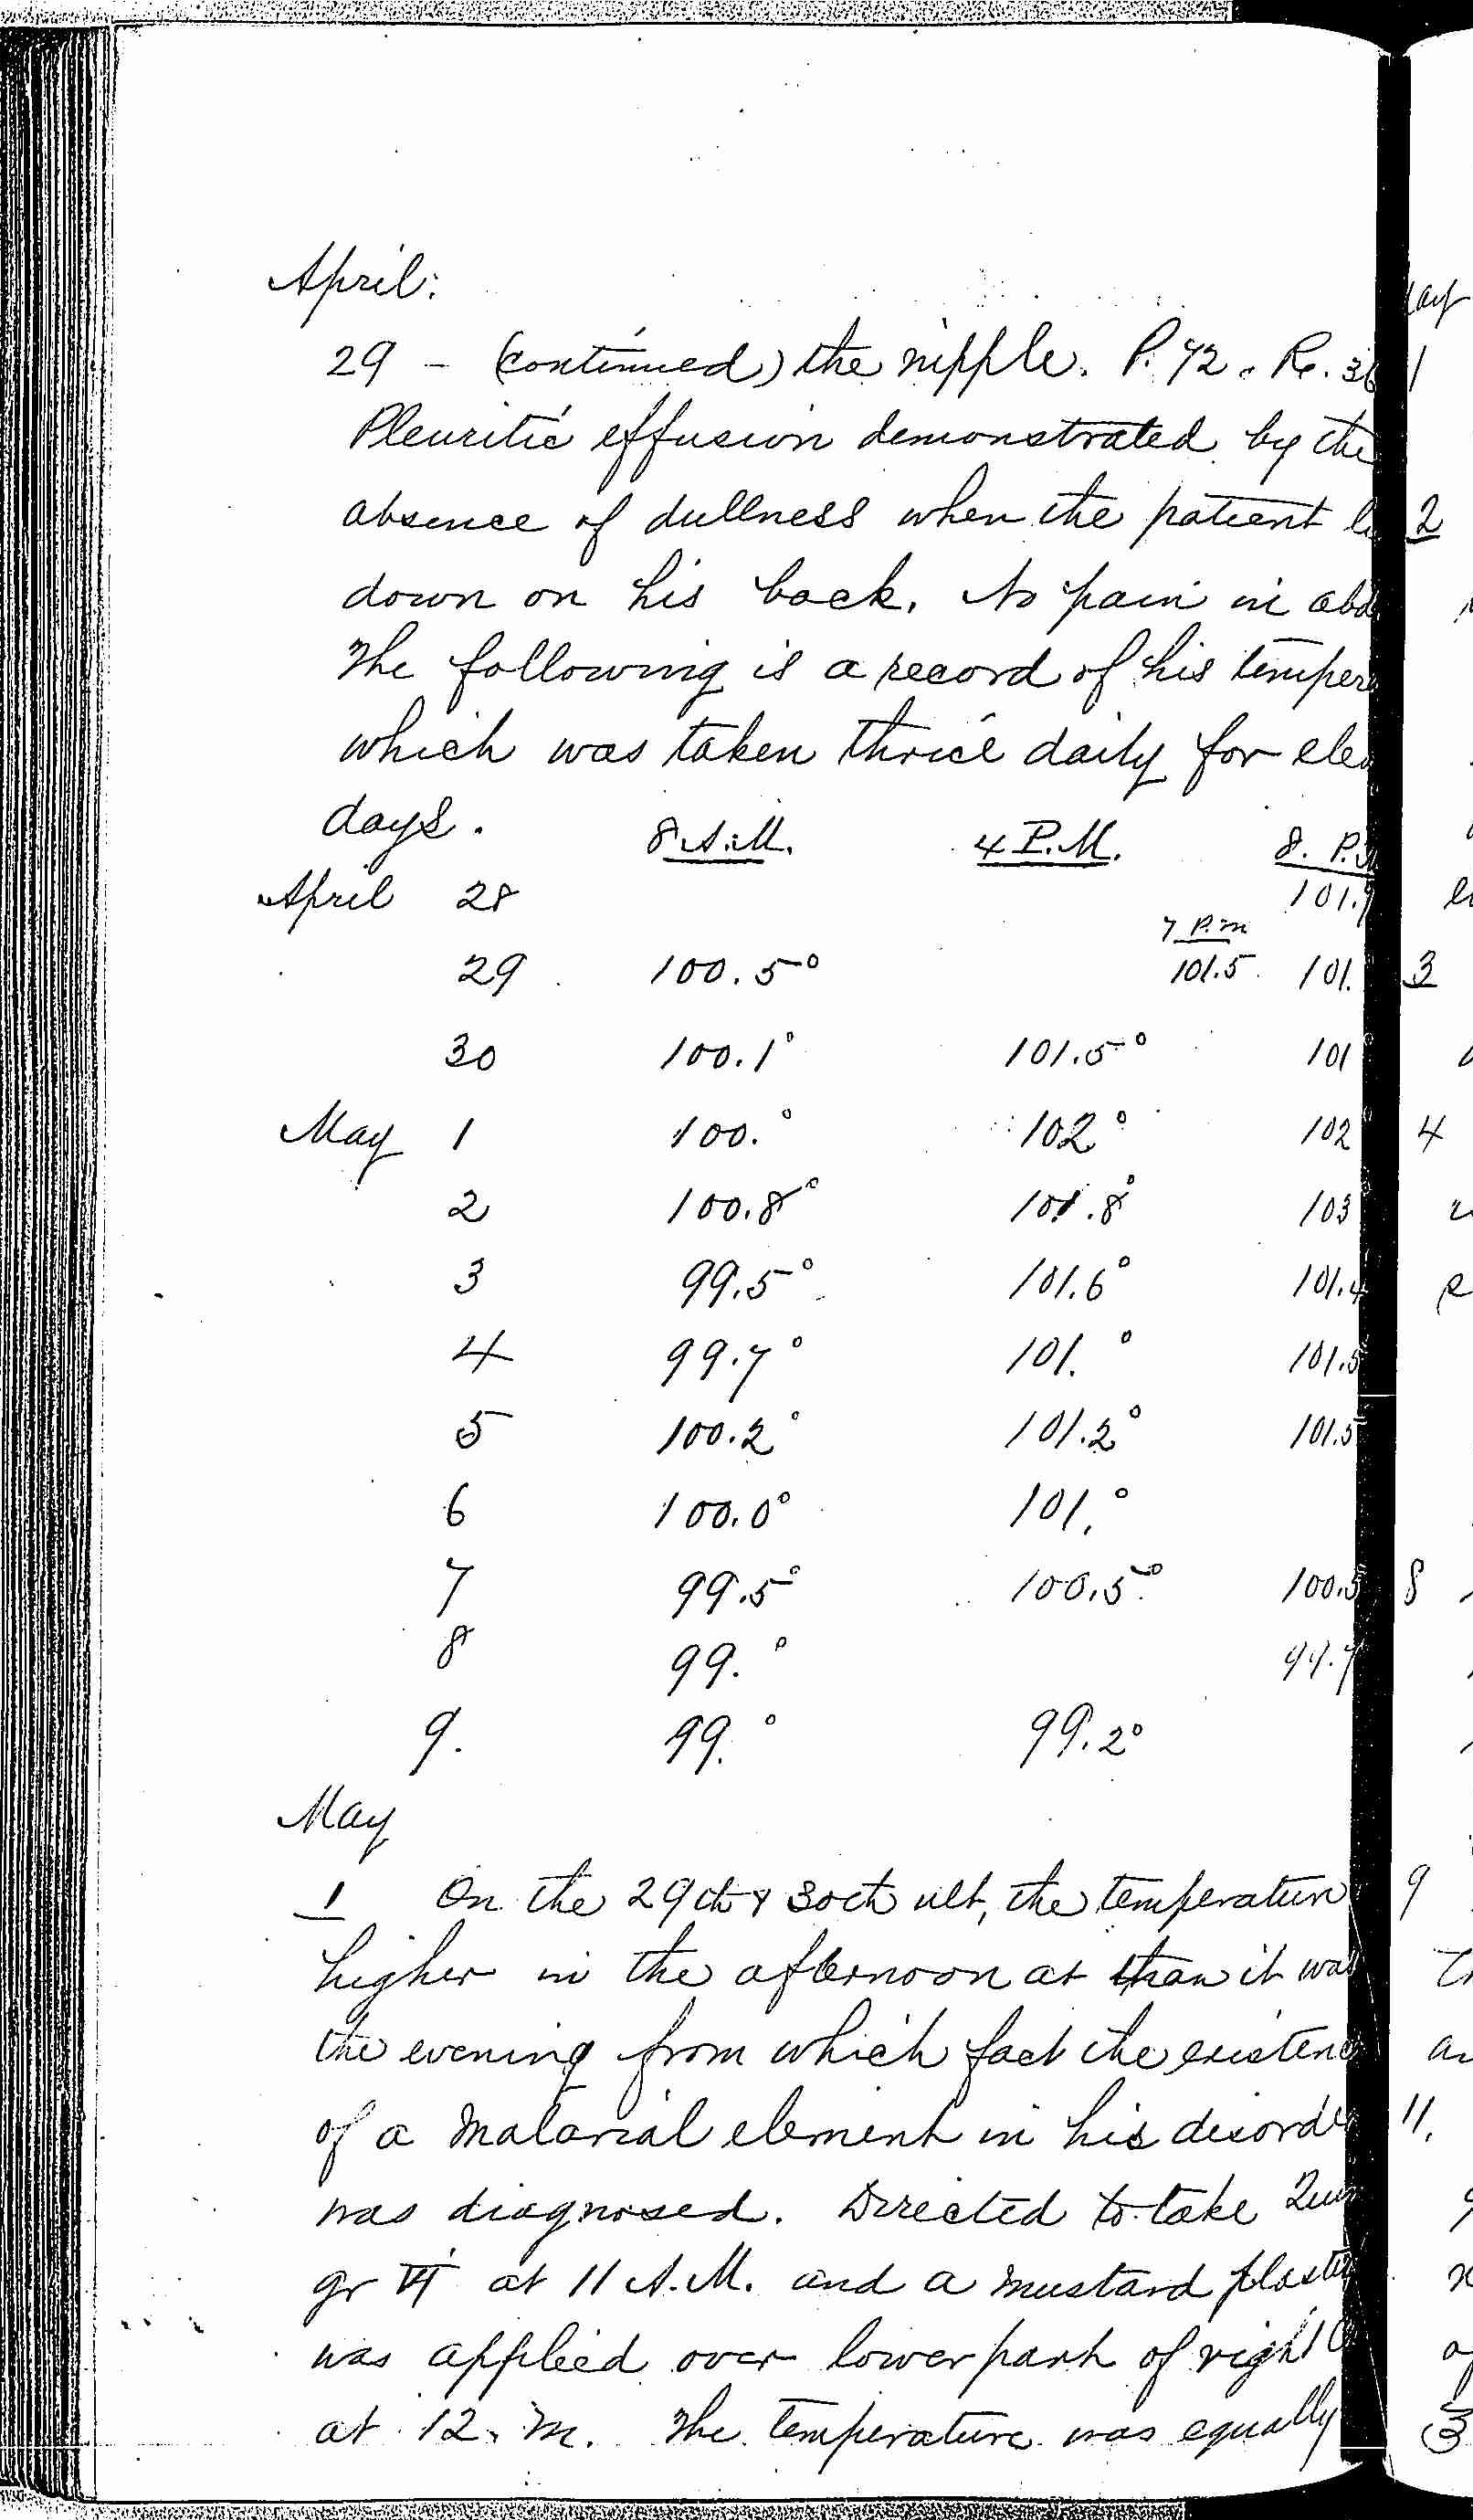 April:
29 - (continued) the nipple. P. 72. Re. 36
Pleuritic effusion demonstrated by the
absence of dullness when the patient
down on his back. No pain in abd
The following is a record of his temper
which was taken thrice daily for ele
days. 8 A.M. 4 P.M. 8. P.M
April 28 101.
7 P.m
29 100.5° 101.5 101.
30 100.1° 101.5° 101
May 1 100.° 102° 102
2 100.8° 101.8° 103
3 99.5° 101.6° 101.4
4 99.7° 101.° 101.5
5 100.2° 101.2° 101.5
6 100.0° 101.°
7 99.5° 100.5° 100.5
8 99.° 99.7
9. 99.° 99.2°
May
1 On the 29th & 30th ult, the temperature
higher in the afternoon at than it was
the evening from which fact the existence
of a malarial element in his disorder
was diagnosed. Directed to take Quin
gr VI at 11 A.M. and a mustard plaster
was applied over lower part of right
at 12. M. The temperature was equally
1
2
3
4
8
9
11.